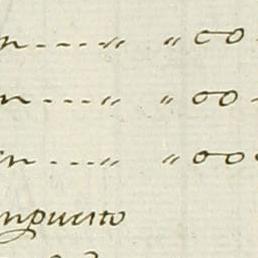 n - - - - „ „ 00
n - - - - „ „ 00
n - - - - „ „ 00
mpuesto